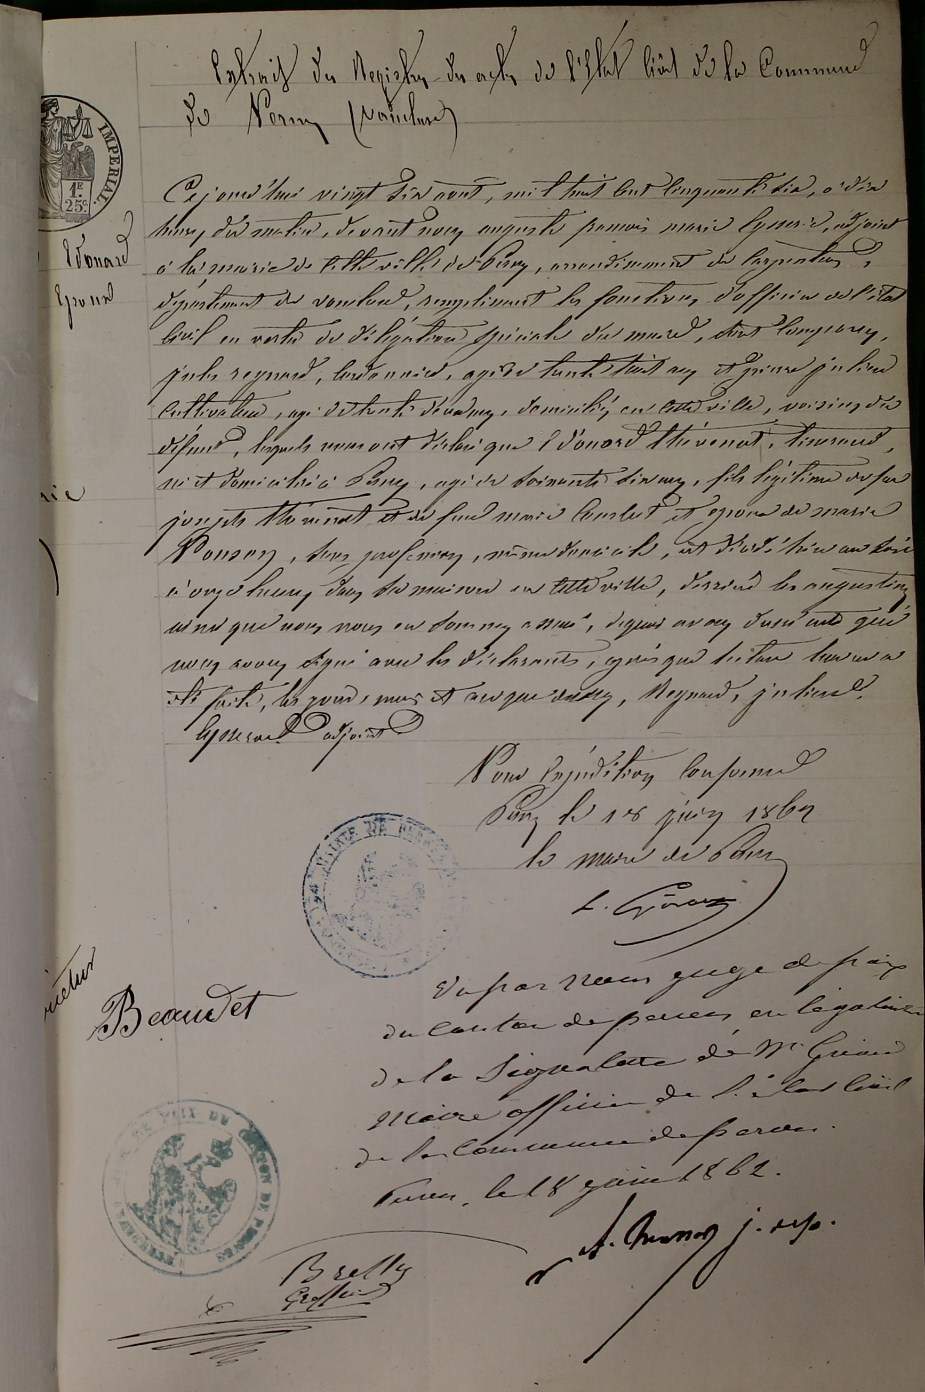 Extrait du Registre des actes de l'Etat Civil de la Commune
de Pernes (Vaucluse)
IMPERIAL.
1F
25c.
Edouard
époux
Cejourd'hui vingt six août, mil huit cent cinquante six, à dix
heures du matin, devant nous auguste françois marie adjoint
à la mairie de cette ville de Pernes, arrondissement de Carpentras,
département de vaucluse, remplissant les fonctions d'officier de l'état
Civil en vertu de délégation spéciale du maire, sont comparus,
jules reynard, cordonnier, agé de trente huit ans et julien
Cultivateur, agé de trente deux ans, domiciliés en cette ville, voisins du
défunt, lesquels nous ont déclaré que Edouard thévenot, tisserand,
né et domicilié à Pernes, agé de soixante six ans, fils légitime de feu
joseph thévenot et de feue marie et époux de marie
Ponson, sans profession, même domicile, est décédé hier au soir
à onze heures dans sa maison en cette ville, derrière les augustins
ainsi que nous nous en sommes assuré, de quoi avons dressé acte que
nous avons signé avec les déclarants, après que lecture leur en a
été faite, les jour, mois et an que dessus, Reynard, julien,
adjoint
Pour Expédition Conforme
Pernes le 18 juin 1862
le maire de Pernes
L. Giraud
MAIRIE DE PERNES
Vu par nous juge de paix
du canton de pernes, en légalisation
de la signature de Mr Giraud
Maire officier de l'état civil
de la commune de pernes.
Pernes, le 18 juin 1862.
Beaudet
j. de p.
DE PAIX DU CANTON DE PERNES
Greffier